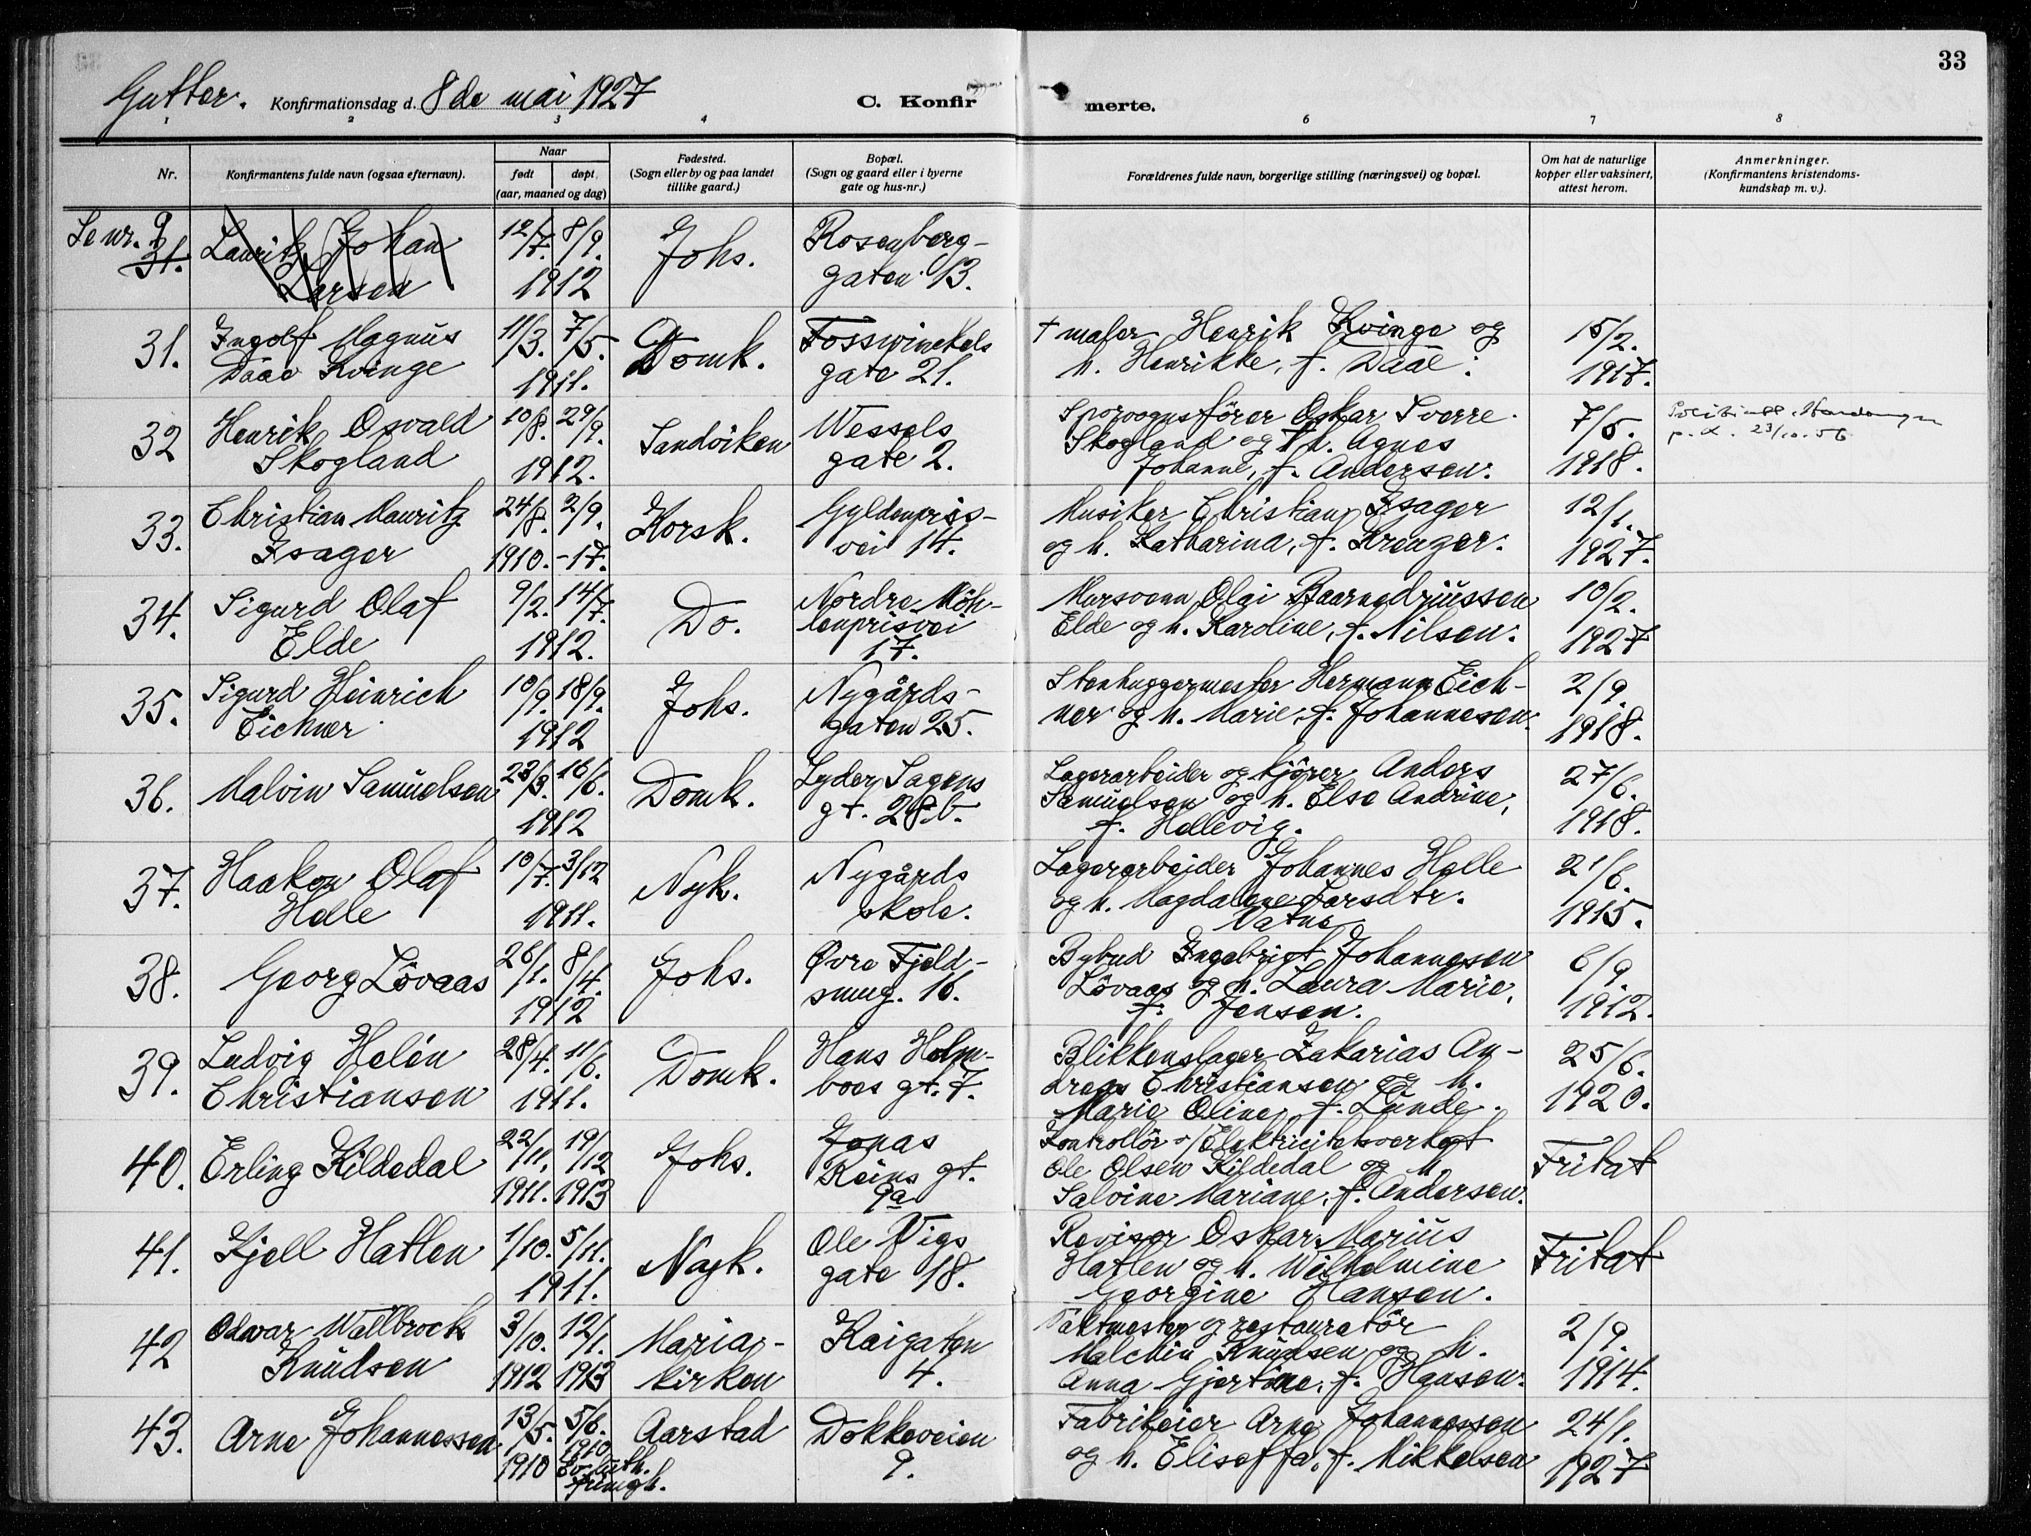 33
Gutter. Konfirmationsdag d. 8de mai 1927
C. Konfirmerte.
1 2 3 4 6 7 8
Nr.
Konfirmantens fulde navn (ogsaa efternavn).
Naar
født døpt
(aar, maaned og dag)
Fødested.
(Sogn eller by og paa landet
tillike gaard.)
Bopæl.
(Sogn og gaard eller i byerne
gate og hus-nr.)
Forældrenes fulde navn, borgerlige stilling (næringsvei) og bopæl.
Om hat de naturlige
kopper eller vaksinert,
attest herom.
Anmerkninger.
(Konfirmantens kristendoms-
kundskap m. v.).
Se nr. 9
31. Lauritz Johan 12/7. 8/9. Johs. Rosenberg-
Larsen 1912 gaten 13.
31. Ingolf Magnus 11/3. 7/5. Domk. Fosswinckels † maler Henrik Kvinge og 15/2.
Daae Kvinge 1911. gate 21. h. Henrikke, f. Daae. 1917.
32 Henrik Osvald 10/8. 29/9. Sandviken Wessels Sporvognsfører Oskar Sverre 7/5.
Skogland 1912. gate 2. Skogland og h. Agnes 1918. p. d. 23/10. 56
Johanne, f. Andersen.
33. Christian Mauritz 24/8. 2/9. Korsk. Gyldenpris- Musiker Christian Isager 12/1.
Isager 1910. -17. vei 14. og h. Katharina, f. Krenger. 1927.
34. Sigurd Olaf 9/2. 14/7. Do. Nordre Möh- Mursvenn Olai Baarnedriussen 10/2.
Elde 1912. lenprisvei Elde og h. Karoline, f. Nilsen. 1927
17.
35. Sigurd Heinrich 10/9. 18/9. Johs. Nygårds- Stenhuggermester Hermann Eich- 2/9.
Eichner 1912 gaten 25. ner og h. Marie, f. Johannesen. 1918.
36. Malvin Samuelsen 23/3. 16/6. Domk. Lyder Sagens Lagerarbeider og kjörer Anders 27/6.
1912 gt. 28b. Samuelsen og h. Else Andrine, 1918.
f. Hellevig.
37. Haakon Olaf 10/7. 3/12 Nyk. Nygårds Lagerarbeider Johannes Helle 21/6.
Helle 1911. skole. og h. Magdalene Larsdtr. 1915.
Vatne
38. Georg Lövaas 26/1. 8/4. Johs. Øvre Fjeld- Bybud Ingebrigt Johannesen 6/9.
1912 smug. 16. Lövaas og h. Laura Marie, 1912.
f. Jensen.
39. Ludvig Helén 28/4. 11/6. Domk. Hans Holm- Blikkenslager Zakarias An- 25/6.
Christiansen 1911. boes gt. 7. dreas Christiansen og h. 1920.
Marie Oline, f. Lunde.
40. Erling Kildedal 22/11. 19/12 Johs. Jonas Kontrollör v/Elektricitetsverket Fritat
1911. 1913 Reins gt. Ole Olsen Kildedal og h.
9a Salvine Mariane, f. Andersen.
41. Kjell Hatlen 1/10. 5/11. Nyk. Ole Vigs Revisor Oskar Marius Fritat
1911. gate 18. Hatlen og h. Wilhelmine
Georgine Hansen.
42 Odvar Wallbrock 3/10. 12/1. Maria- Kaigaten Taktmester og restauratör 2/9.
Knudsen 1912 1913 kirken 4. Malchin Knudsen og h. 1914.
Anna Gjertine, f. Hansen.
43. Arne Johannessen 13/5. 5/6. Aarstad Dokkeveien Fabrikeier Arne Johannessen 24/1.
1910 1910 9. og h. Eliseffa, f. Mikkelsen 1927
Ev. luth.
frimgh.